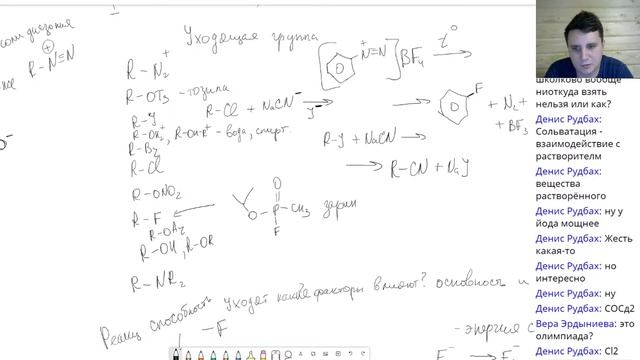 соли диазония
R-N≡N
Уходящая группа
R-N₂⁺
R-OTs - тозила
R-Cl + NaCN
R-J
R-OH₂⁺, R-OH-R⁺ - вода, спирт.
R-Br
R-Cl
R-ONO₂
R-F
R-OAc
R-OH, R-OR
R-NR₂
N≡N
BF₄
t°
F
+ N₂ +
+ BF₃
R-J + NaCN →
→ R-CN + NaJ
O
O-P-CH₃
F
зарин
Реакц способность
Уходят какие факторы влияют? основность и
-F
- энергия с
F⁻ → F⁻
школково вообще
ниоткуда взять
нельзя или как?
Денис Рудбах:
Сольватация -
взаимодействие с
растворителм
Денис Рудбах:
вещества
растворённого
Денис Рудбах: ну у
йода мощнее
Денис Рудбах: Жесть
какая-то
Денис Рудбах: но
интересно
Денис Рудбах: ну
Денис Рудбах: СОСд2
Вера Эрдыниева: это
олимпиада?
Денис Рудбах: Cl2